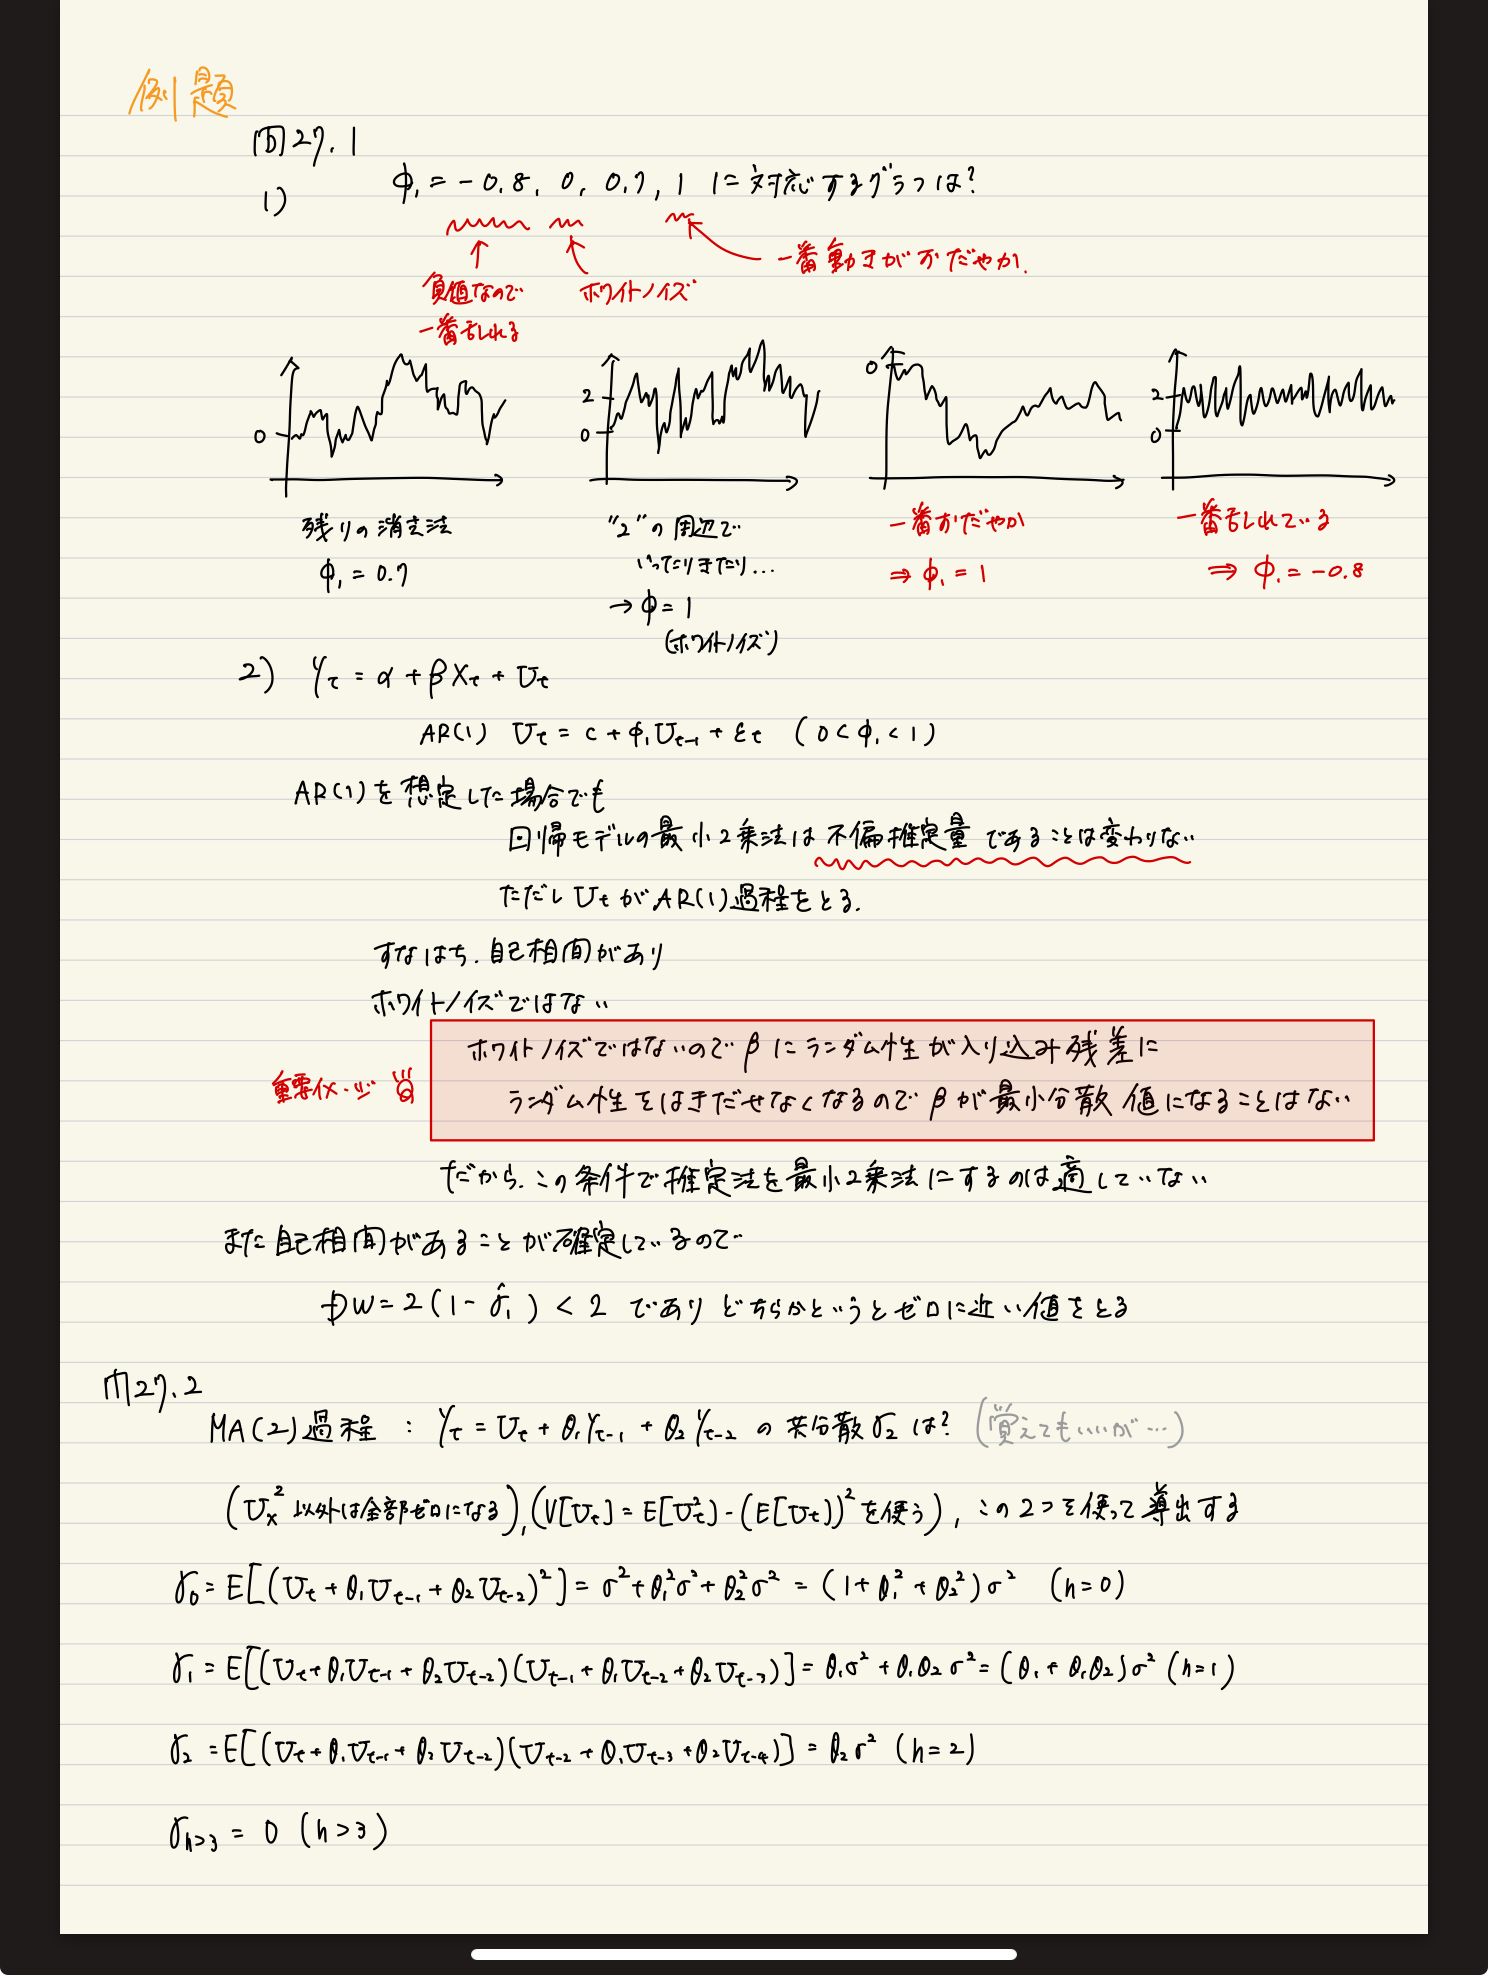 例題
問27.1
1) φ₁ = -0.8, 0, 0.7, 1 に対応するグラフは?
負値なので
一番乱れる
ホワイトノイズ
一番動きがおだやか.
0
2
0
0
2
0
残りの消去法
φ₁ = 0.7
"2"の周辺で
いったりきたり...
→ φ = 1
(ホワイトノイズ)
一番おだやか
⇒ φ₁ = 1
一番乱れている
⇒ φ₁ = -0.8
2) Yt = α + βXt + Ut
AR(1) Ut = c + φ₁Ut-1 + εt (0 < φ₁ < 1)
AR(1)を想定した場合でも
回帰モデルの最小2乗法は不偏推定量であることは変わりない
ただしUtがAR(1)過程をとる.
すなはち.自己相関があり
ホワイトノイズではない
ホワイトノイズではないのでβにランダム性が入り込み残差に
重要イメージ
ランダム性をはきだせなくなるのでβが最小分散値になることはない
だから.この条件で推定法を最小2乗法にするのは適していない
また自己相関があることが確定しているので
DW = 2(1 - γ̂₁) < 2 でありどちらかというとゼロに近い値をとる
問27.2
MA(2)過程 : Yt = Ut + θ₁Yt-1 + θ₂Yt-2 の共分散γ₂は? (覚えてもいいが...)
(Ux² 以外は全部ゼロになる), (V[Ut] = E[Ut²] - (E[Ut])² を使う), この2つを使って導出する
γ₀ = E[(Ut + θ₁Ut-1 + θ₂Ut-2)²] = σ² + θ₁²σ² + θ₂²σ² = (1 + θ₁² + θ₂²)σ² (h=0)
γ₁ = E[(Ut + θ₁Ut-1 + θ₂Ut-2)(Ut-1 + θ₁Ut-2 + θ₂Ut-3)] = θ₁σ² + θ₁θ₂σ² = (θ₁ + θ₁θ₂)σ² (h=1)
γ₂ = E[(Ut + θ₁Ut-1 + θ₂Ut-2)(Ut-2 + θ₁Ut-3 + θ₂Ut-4)] = θ₂σ² (h=2)
γh>3 = 0 (h>3)